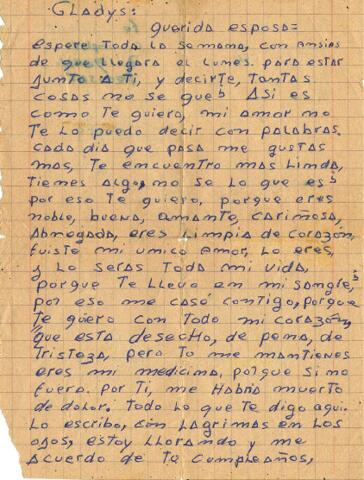 Gladys:
querida esposa=
espere toda la semana, con ansias
de que llegara el lunes. para estar
junto a ti, y decirte, tantas
cosas no se que Asi es
como te quiero, mi amor no
te lo puedo decir con palabras.
cada dia que pasa me gustas
mas, te encuentro mas linda,
tienes algo, no se lo que es
por eso te quiero, porque eres
noble, buena, amante, cariñosa,
abnegada, eres limpia de corazon
fuiste mi unico amor, lo eres,
y lo seras toda mi vida,
porque te llevo en mi sangre,
por eso me casé contigo, porque
te quiero con todo mi corazon,
que esta desecho, de pena, de
tristeza, pero tu me mantienes
eres mi medicina, porque si no
fuera. por ti, me habria muerto
de dolor. todo lo que te digo aqui.
lo escribo, con lagrimas en los
ojos, estoy llorando y me
acuerdo de tu cumpleaños,